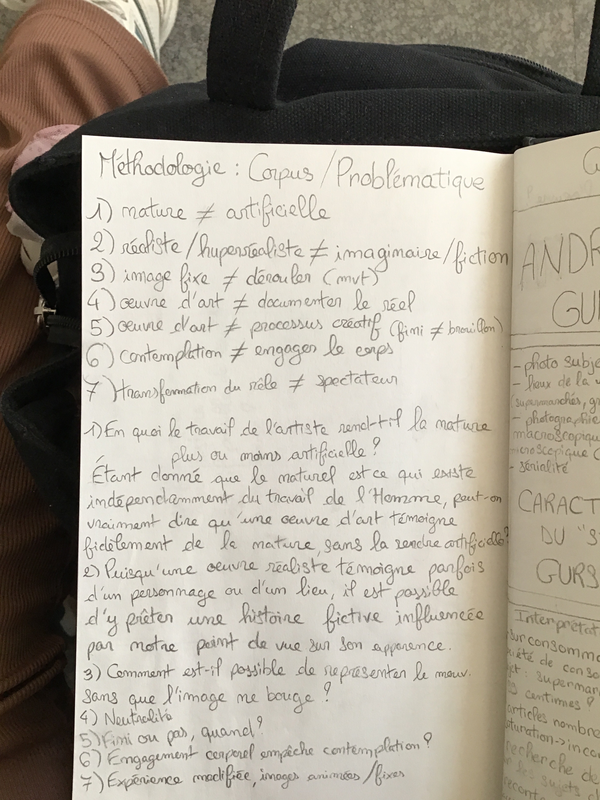 Méthodologie : Corpus / Problématique
1) nature ≠ artificielle
2) réaliste / hyperréaliste ≠ imaginaire / fiction
3) image fixe ≠ dérouler (mvt)
4) œuvre d'art ≠ documenter le réel
5) œuvre d'art ≠ processus créatif (fini ≠ brouillon)
6) contemplation ≠ engager le corps
7) transformation du rôle ≠ spectateur
1) En quoi le travail de l'artiste rend-t-il la nature
plus ou moins artificielle ?
Étant donné que le naturel est ce qui existe
indépendamment du travail de l'Homme, peut-on
vraiment dire qu'une œuvre d'art témoigne
fidèlement de la nature, sans la rendre artificielle ?
2) Puisqu'une œuvre réaliste témoigne parfois
d'un personnage ou d'un lieu, il est possible
d'y prêter une histoire fictive influencée
par notre point de vue sur son apparence.
3) Comment est-il possible de représenter le mouv.
sans que l'image ne bouge ?
4) Neutralité
5) Fini ou pas, quand ?
6) Engagement corporel empêche contemplation ?
7) Expérience modifiée, images animées / fixes
ANDR
GU
- photo subje
- lieux de la
(supermarchés, gr
- photographie
macroscopique
- sérialité
CARACT
DU "S
GURS
Interprétat
sur consomm
été de conso
supermar
centimes ?
articles nombre
recherche de
les sujets